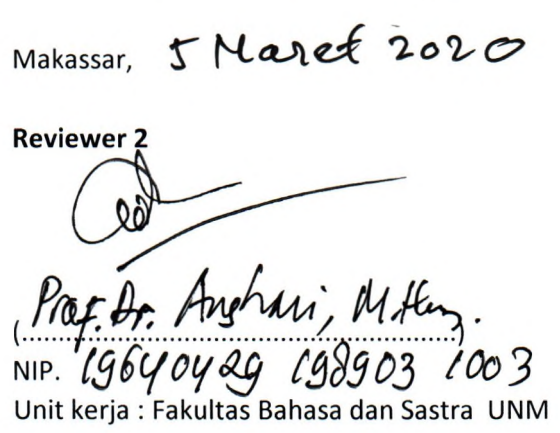 Makassar, 5 Maret 2020
Reviewer 2
(Prof. Dr. Anshari, M.Hum.)
NIP. 19640429 198903 1003
Unit kerja : Fakultas Bahasa dan Sastra UNM